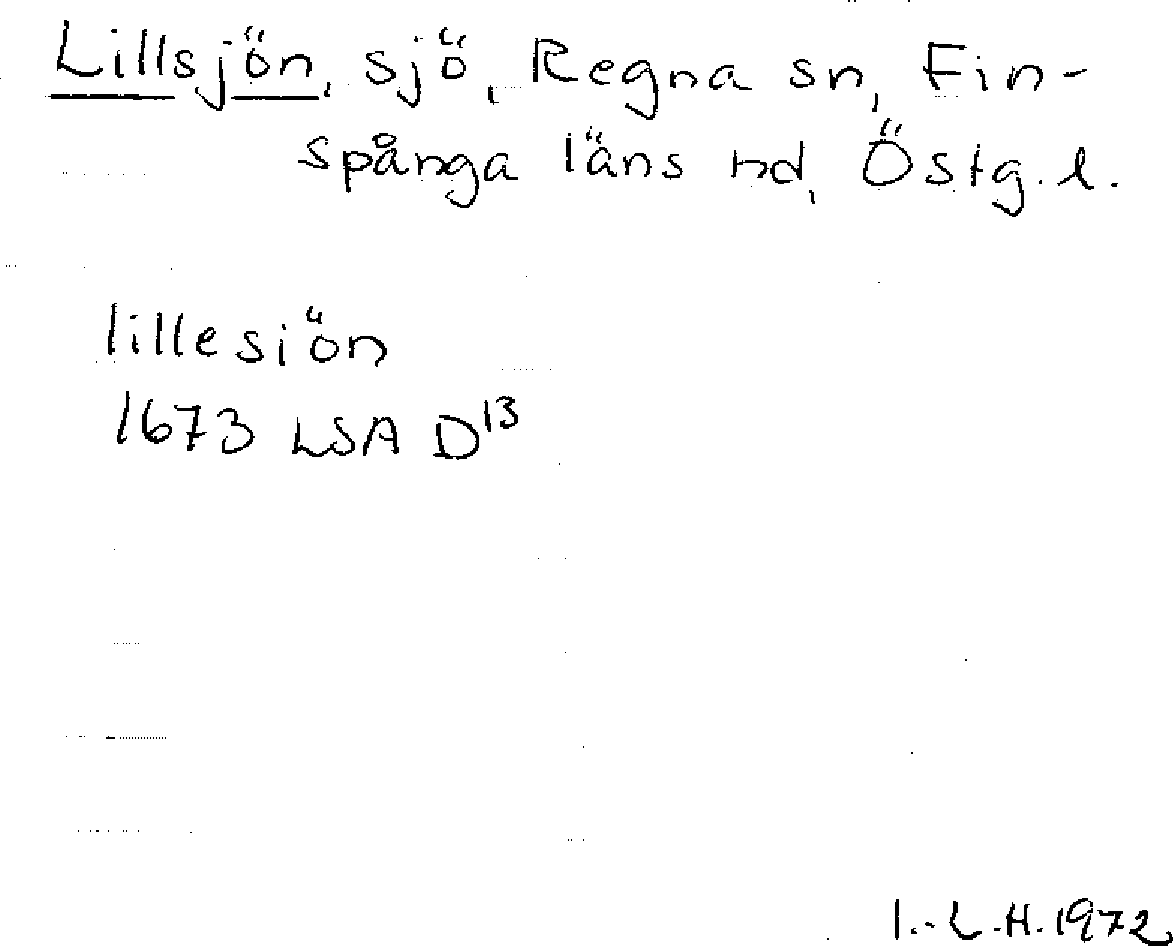 Lillsjön, sjö, Regna sn, Fin-
spånga läns hd, Östg.l.
lillesiön
1673 LSA D13
I.-L.H.1972